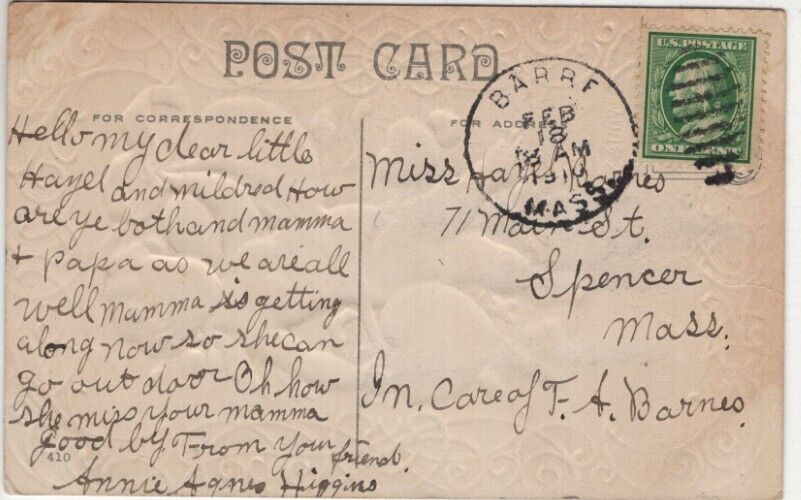 POST CARD
FOR CORRESPONDENCE
Hello my dear little
Hazel and mildred How
are ye both and mamma
+ Papa as we are all
well mamma is getting
along now so she can
go out door Oh how
she miss your mamma
good by From your
friend
410
Annie Agnes Higgins
FOR ADDRESS
BARRE
FEB
AM
1910
MASS
U.S. POSTAGE
ONE CENT
Miss Hazel Barnes
71 Main St.
Spencer
Mass.
In. Care of F. A. Barnes